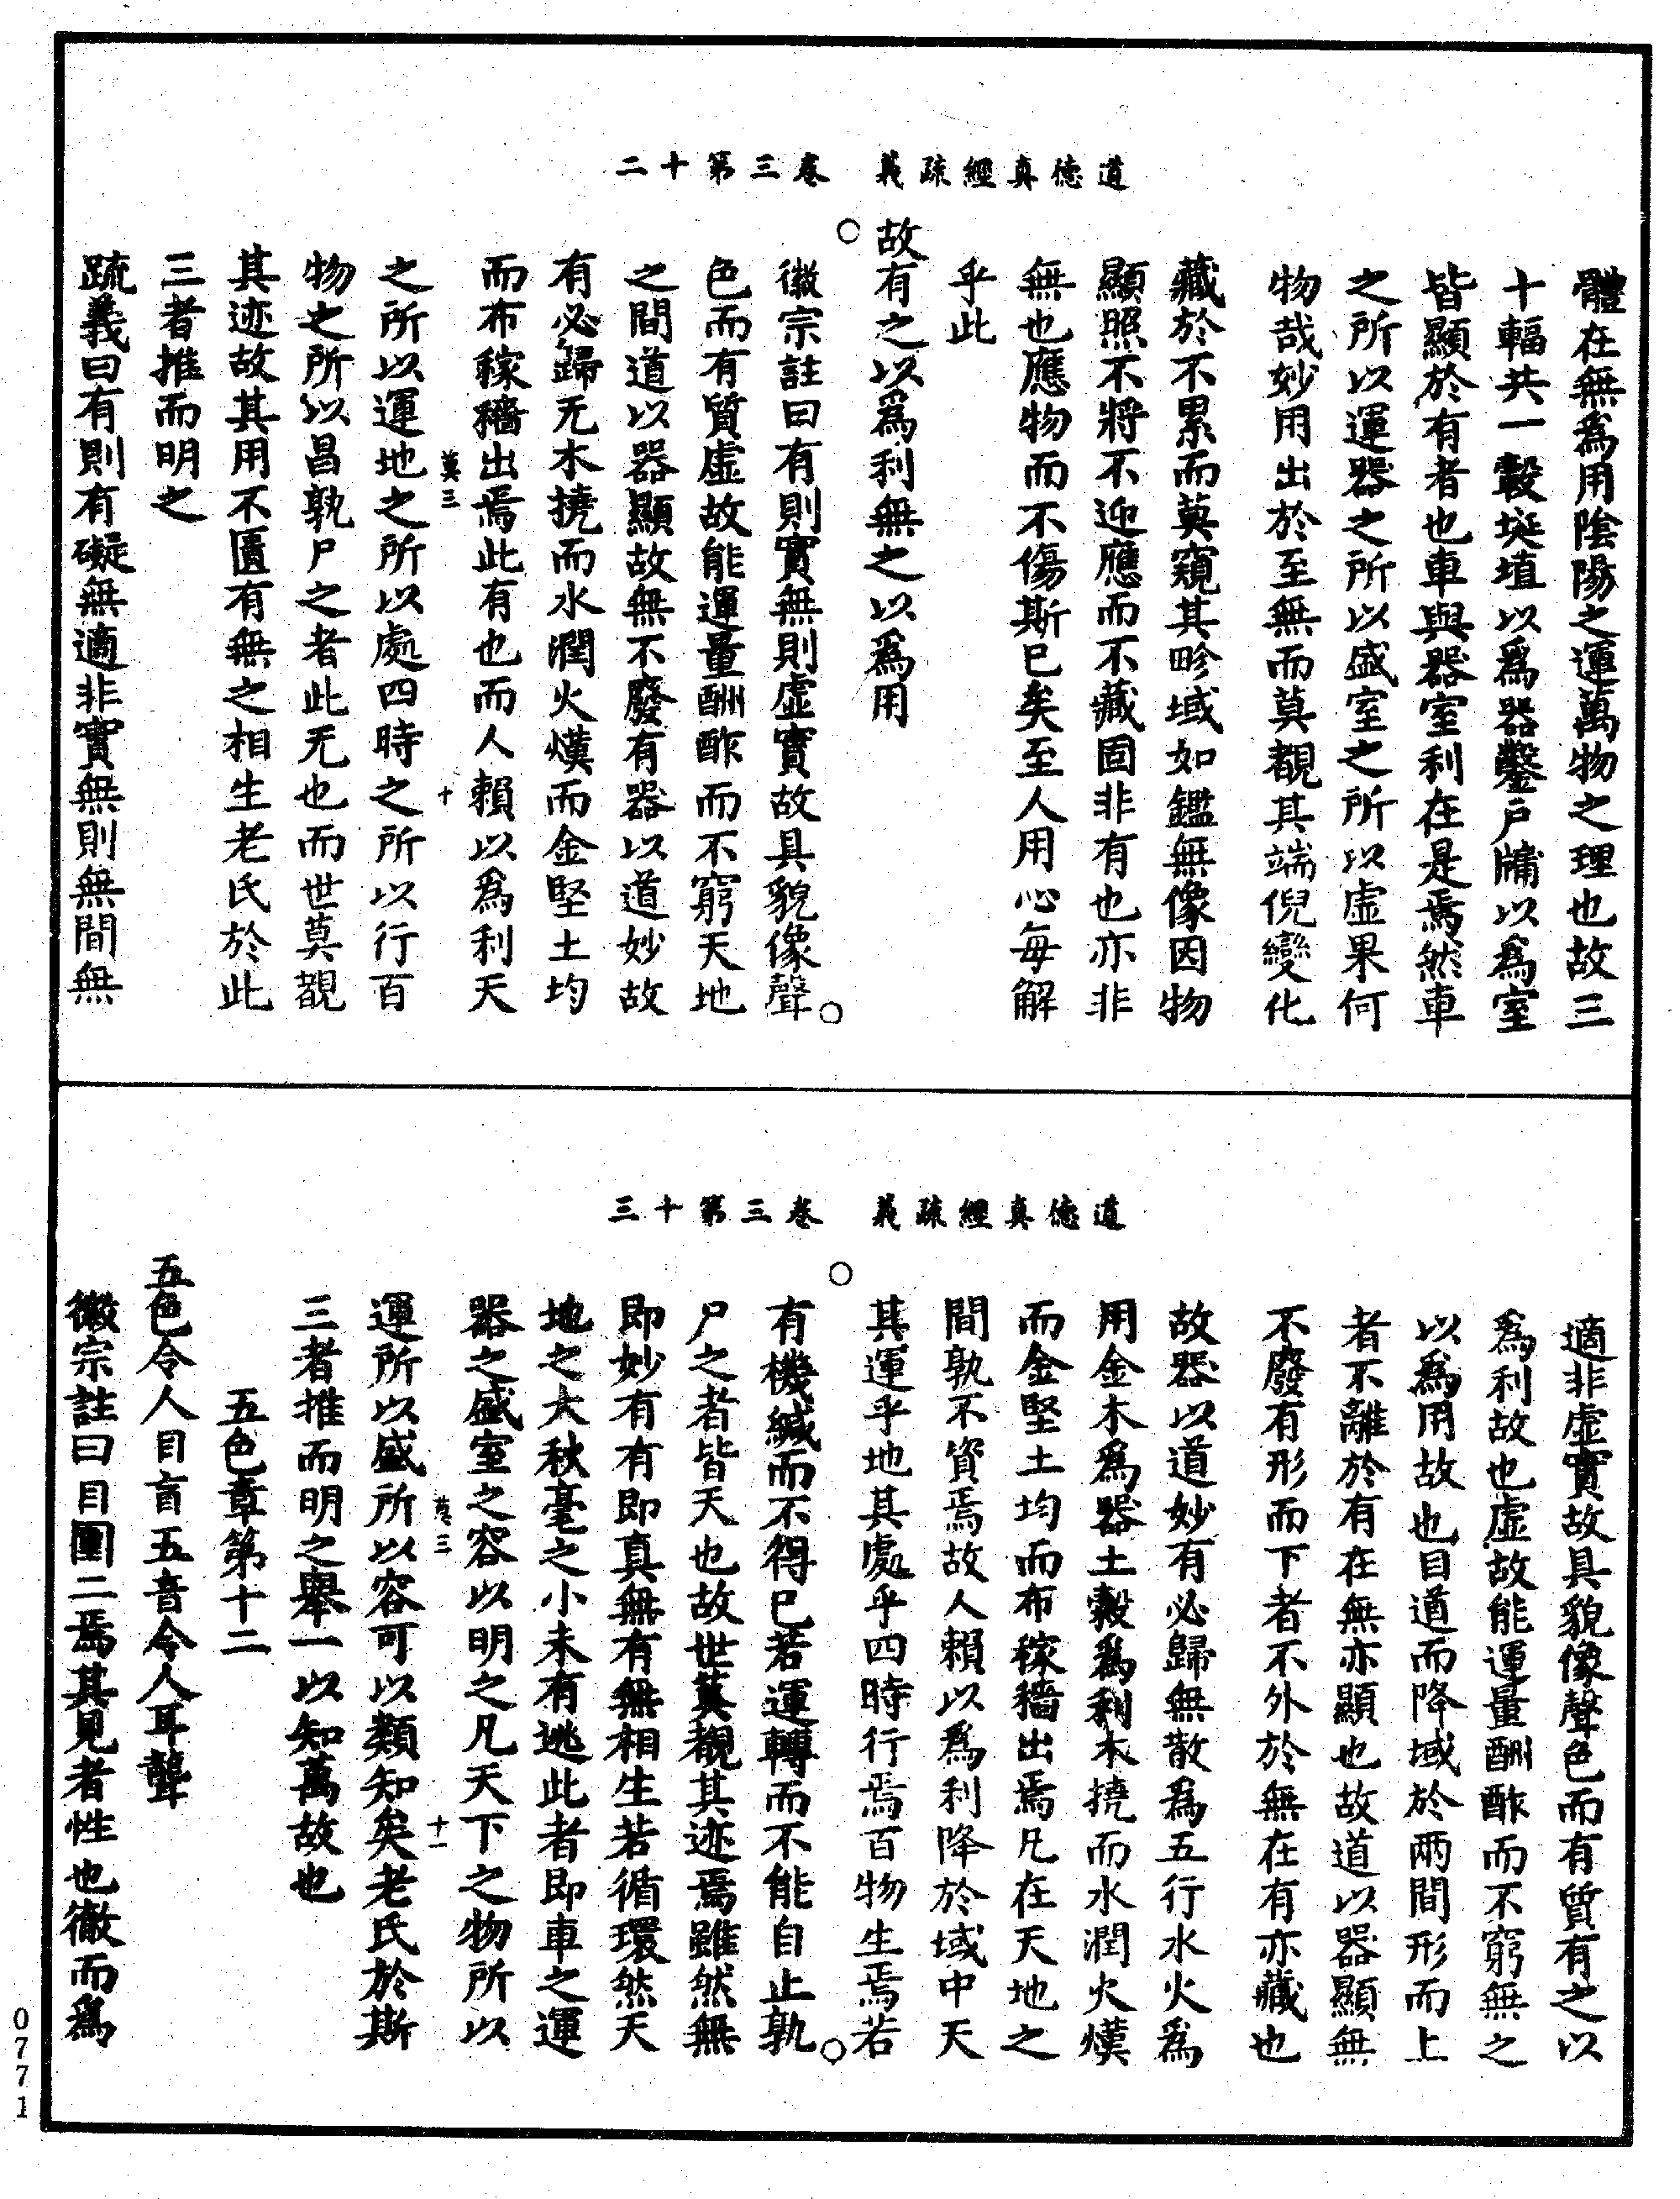 道德真經疏義　卷三第十二
體在無爲用陰陽之運萬物之理也故三
十輻共一轂埏埴以爲器鑿戶牖以爲室
皆顯於有者也車與器室利在是焉然車
之所以運器之所以盛室之所以虛果何
物哉妙用出於至無而莫覩其端倪變化
藏於不累而莫窺其畛域如鑑無像因物
顯照不將不迎應而不藏固非有也亦非
無也應物而不傷斯已矣至人用心每解
乎此
故有之以爲利無之以爲用
徽宗註曰有則實無則虛實故具貌像聲
色而有質虛故能運量酬酢而不窮天地
之間道以器顯故無不廢有器以道妙故
有必歸无木撓而水潤火熯而金堅土均
而布稼穡出焉此有也而人賴以爲利天
莫三　十
之所以運地之所以處四時之所以行百
物之所以昌孰尸之者此无也而世莫覩
其迹故其用不匱有無之相生老氏於此
三者推而明之
疏義曰有則有礙無適非實無則無間無
道德真經疏義　卷三第十三
適非虛實故具貌像聲色而有質有之以
爲利故也虛故能運量酬酢而不窮無之
以爲用故也自道而降域於兩間形而上
者不離於有在無亦顯也故道以器顯無
不廢有形而下者不外於無在有亦藏也
故器以道妙有必歸無散爲五行水火爲
用金木爲器土穀爲利木撓而水潤火熯
而金堅土均而布稼穡出焉凡在天地之
間孰不資焉故人賴以爲利降於域中天
其運乎地其處乎四時行焉百物生焉若
有機緘而不得已若運轉而不能自止孰
尸之者皆天也故世莫覩其迹焉雖然無
即妙有有即真無有無相生若循環然天
地之大秋毫之小未有逃此者即車之運
器之盛室之容以明之凡天下之物所以
莫三　十一
運所以盛所以容可以類知矣老氏於斯
三者推而明之舉一以知萬故也
五色章第十二
五色令人目盲五音令人耳聾
徽宗註曰目圍二焉其見者性也徹而爲
0771